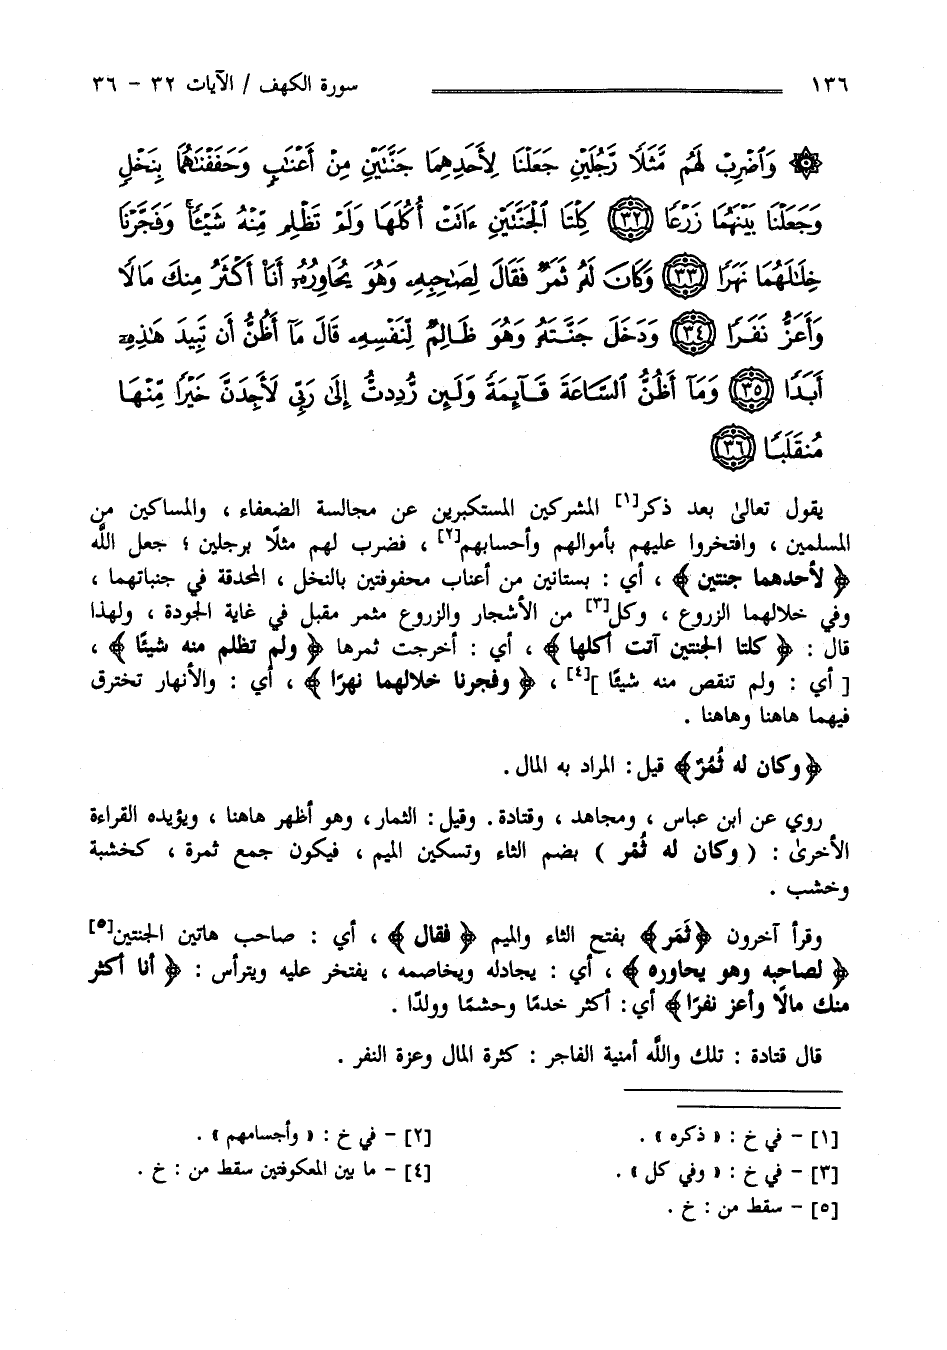 ١٣٦ سورة الكهف / الآيات ٣٢ - ٣٦
۞ وَٱضْرِبْ لَهُم مَّثَلًا رَّجُلَيْنِ جَعَلْنَا لِأَحَدِهِمَا جَنَّتَيْنِ مِنْ أَعْنَٰبٍ وَحَفَفْنَٰهُمَا بِنَخْلٍ
وَجَعَلْنَا بَيْنَهُمَا زَرْعًا ٣٢ كِلْتَا ٱلْجَنَّتَيْنِ ءَاتَتْ أُكُلَهَا وَلَمْ تَظْلِم مِّنْهُ شَيْـًٔا ۚ وَفَجَّرْنَا
خِلَٰلَهُمَا نَهَرًا ٣٣ وَكَانَ لَهُۥ ثَمَرٌ فَقَالَ لِصَٰحِبِهِۦ وَهُوَ يُحَاوِرُهُۥٓ أَنَا۠ أَكْثَرُ مِنكَ مَالًا
وَأَعَزُّ نَفَرًا ٣٤ وَدَخَلَ جَنَّتَهُۥ وَهُوَ ظَالِمٌ لِّنَفْسِهِۦ قَالَ مَآ أَظُنُّ أَن تَبِيدَ هَٰذِهِۦٓ
أَبَدًا ٣٥ وَمَآ أَظُنُّ ٱلسَّاعَةَ قَآئِمَةً وَلَئِن رُّدِدتُّ إِلَىٰ رَبِّى لَأَجِدَنَّ خَيْرًا مِّنْهَا
مُنقَلَبًا ٣٦
يقول تعالىٰ بعد ذكر[١] المشركين المستكبرين عن مجالسة الضعفاء ، والمساكين من
المسلمين ، وافتخروا عليهم بأموالهم وأحسابهم[٢] ، فضرب لهم مثلًا برجلين ؛ جعل اللَّه
﴿ لأحدهما جنتين ﴾ ، أي : بستانين من أعناب محفوفتين بالنخل ، المحدقة في جنباتهما ،
وفي خلالهما الزروع ، وكل[٣] من الأشجار والزروع مثمر مقبل في غاية الجودة ، ولهذا
قال : ﴿ كلتا الجنتين آتت أكلها ﴾ ، أي : أخرجت ثمرها ﴿ ولم تظلم منه شيئًا ﴾ ،
[ أي : ولم تنقص منه شيئًا ][٤] ، ﴿ وفجرنا خلالهما نهرًا ﴾ ، أي : والأنهار تخترق
فيهما هاهنا وهاهنا .
﴿وكان له ثُمُرٌ﴾ قيل : المراد به المال .
روي عن ابن عباس ، ومجاهد ، وقتادة . وقيل : الثمار ، وهو أظهر هاهنا ، ويؤيده القراءة
الأخرىٰ : ( وكان له ثُمْر ) بضم الثاء وتسكين الميم ، فيكون جمع ثمرة ، كخشبة
وخشب .
وقرأ آخرون ﴿ثَمَر﴾ بفتح الثاء والميم ﴿ فقال ﴾ ، أي : صاحب هاتين الجنتين[٥]
﴿ لصاحبه وهو يحاوره ﴾ ، أي : يجادله ويخاصمه ، يفتخر عليه ويترأس : ﴿ أنا أكثر
منك مالًا وأعز نفرًا﴾ أي : أكثر خدمًا وحشمًا وولدًا .
قال قتادة : تلك واللَّه أمنية الفاجر : كثرة المال وعزة النفر .
[١] - في خ : « ذكره » . [٢] - في خ : « وأجسامهم » .
[٣] - في خ : « وفي كل » . [٤] - ما بين المعكوفتين سقط من : خ .
[٥] - سقط من : خ .